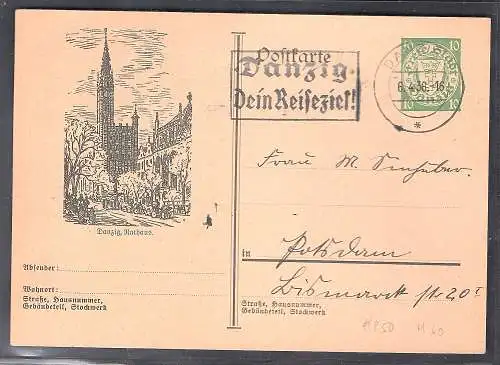 Postkarte
Danzig.
Dein Reiseziel!
DANZIG
6.4.36.-16
*
10
10
10
10
Danzig, Rathaus.
Frau M.
in Potsdam
Bismarckstr 20 I
Absender:
Wohnort:
Straße, Hausnummer,
Gebäudeteil, Stockwerk
Straße, Hausnummer,
Gebäudeteil, Stockwerk